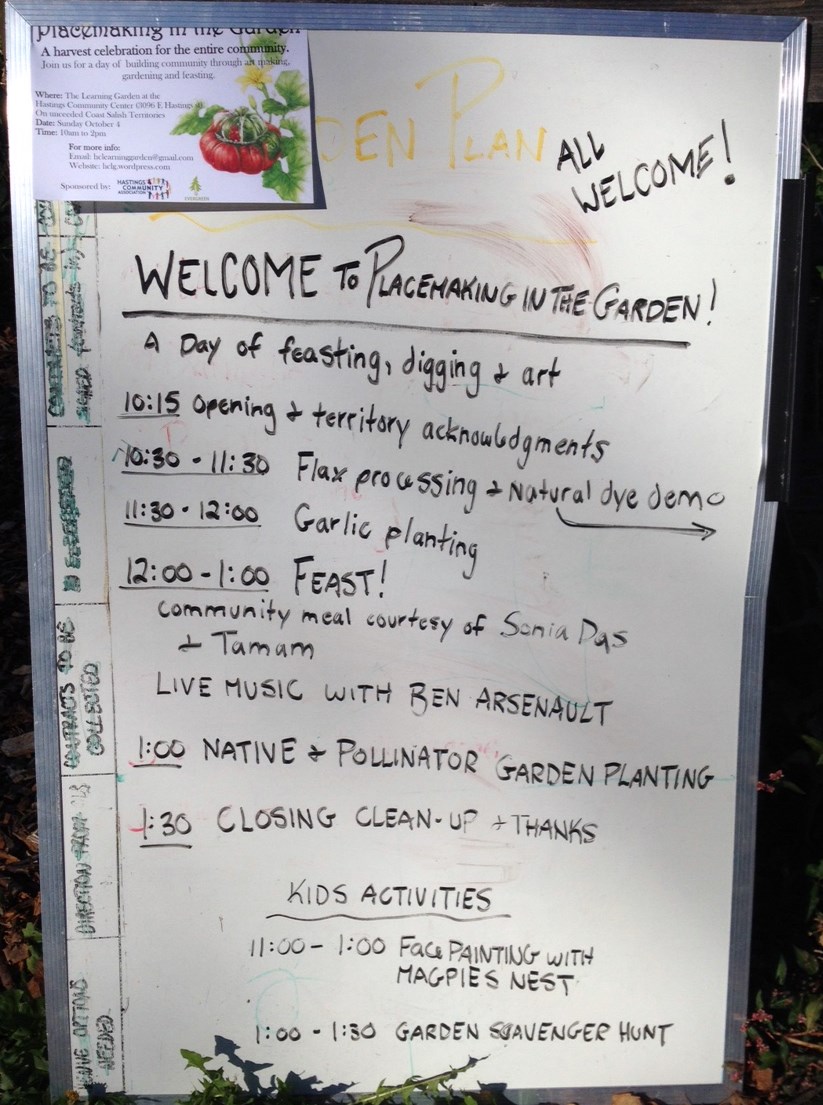 Placemaking in the Garden
A harvest celebration for the entire community.
Join us for a day of building community through art making,
gardening and feasting.
Where: The Learning Garden at the
Hastings Community Center (3096 E Hastings st)
On unceeded Coast Salish Territories
Date: Sunday October 4
Time: 10am to 2pm
For more info:
Email: hclearninggarden@gmail.com
Website: hclg.wordpress.com
Sponsored by:
HASTINGS
COMMUNITY
ASSOCIATION
EVERGREEN
DEN PLAN
ALL
WELCOME!
WELCOME TO PLACEMAKING IN THE GARDEN!
A Day of feasting, digging & art
10:15 Opening & territory acknowledgments
10:30 - 11:30 Flax processing & Natural dye demo
11:30 - 12:00 Garlic planting
12:00 - 1:00 FEAST!
community meal courtesy of Sonia Das
& Tamam
LIVE MUSIC WITH BEN ARSENAULT
1:00 NATIVE & POLLINATOR GARDEN PLANTING
1:30 CLOSING CLEAN-UP & THANKS
KIDS ACTIVITIES
11:00 - 1:00 Face PAINTING WITH
MAGPIES NEST
1:00 - 1:30 GARDEN SCAVENGER HUNT
CONTRACTS TO BE
CONTRACTS TO BE
COLLECTED
DIRECTION FROM
OPTIONS
NEEDED